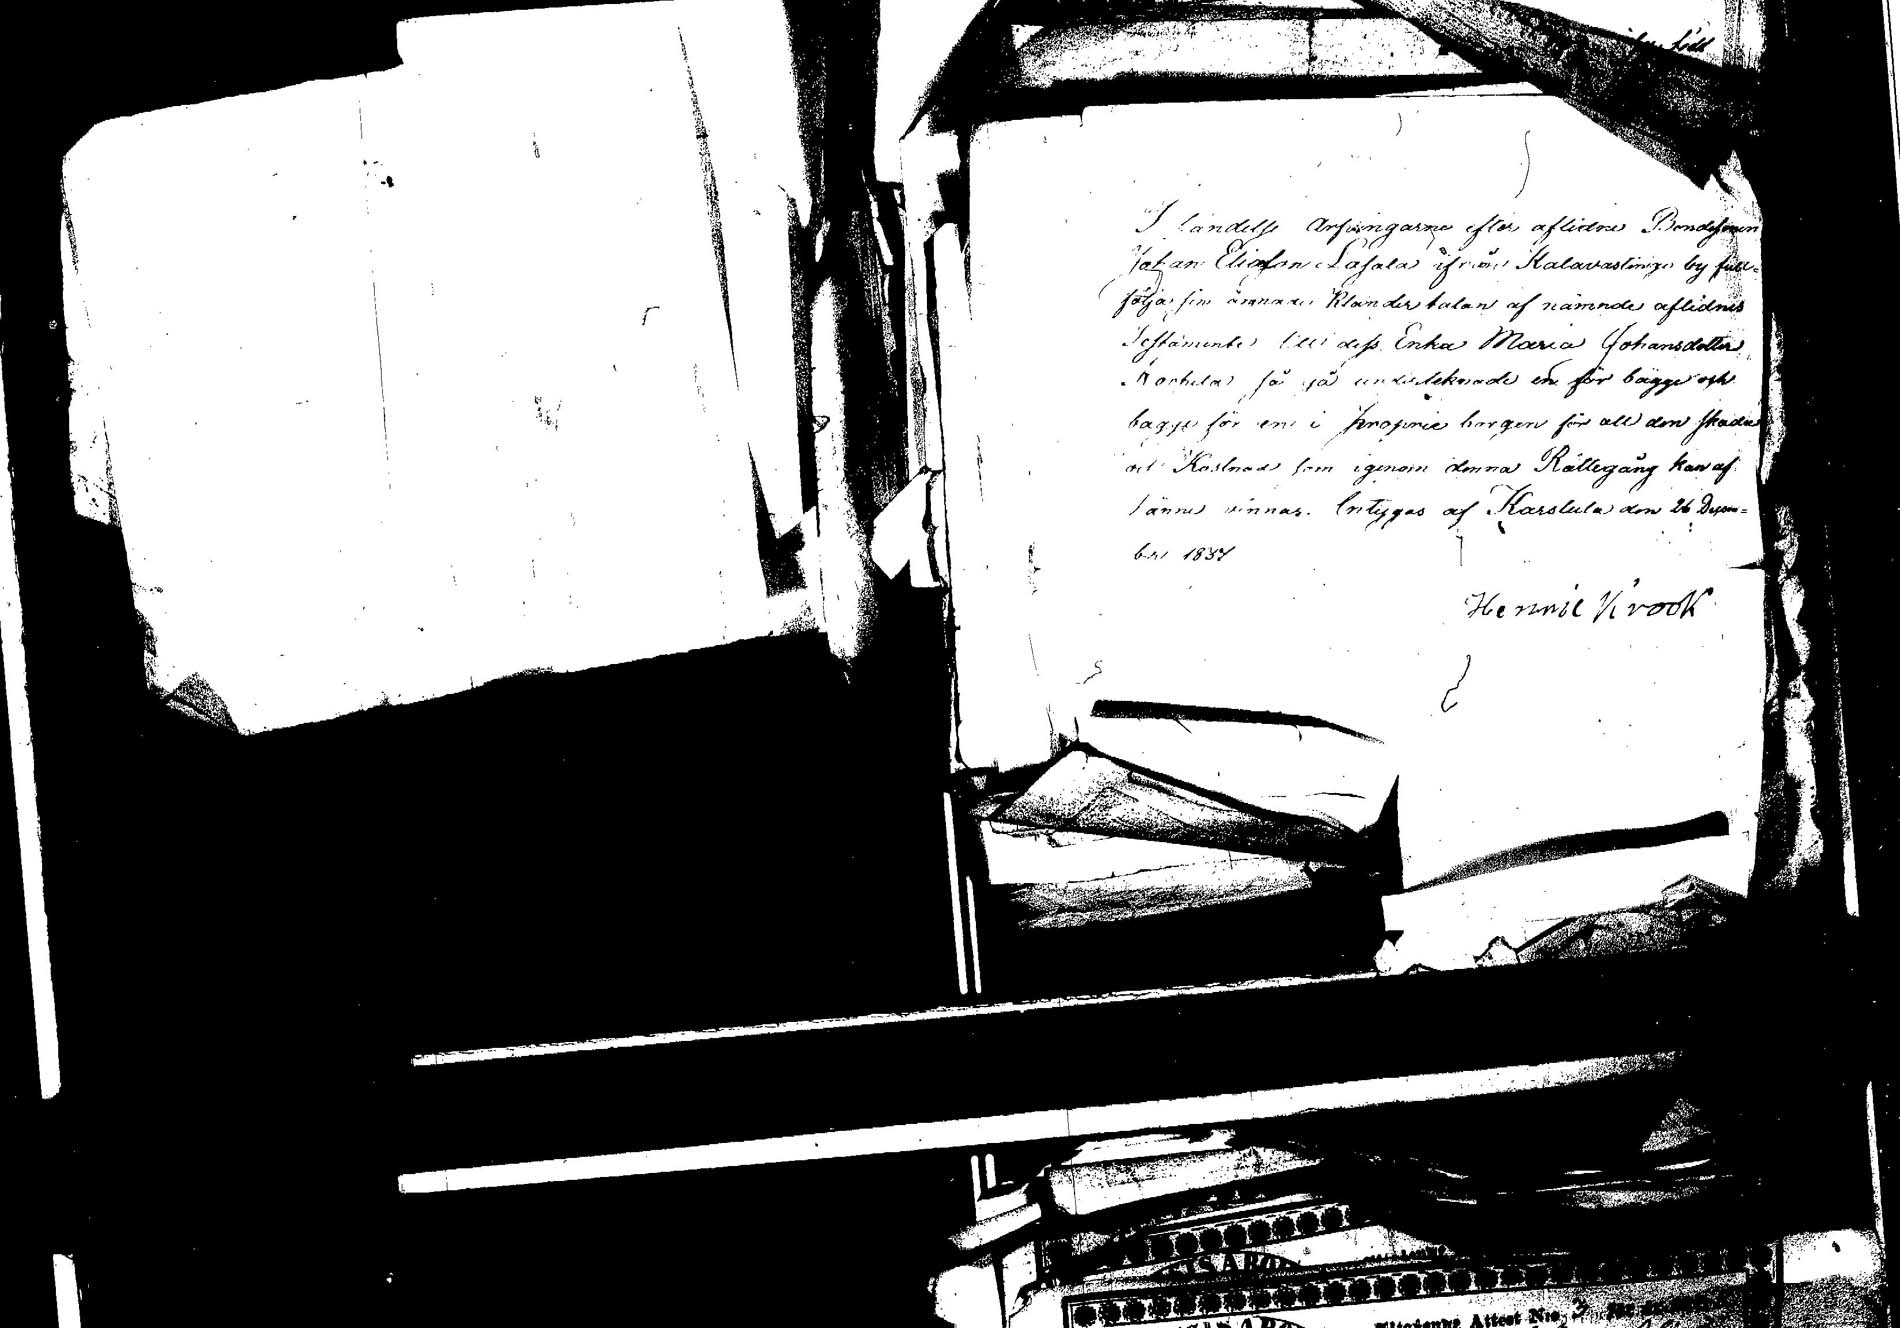 I händelse Arfvingarne efter aflidne Bondesonen
Johan Eliasson Lasala ifrån Kalavastinge by full-
följa sin ämnade Klander talan af nämnde aflidnes
Testamente till dess Enka Maria Johansdotter
så gå underteknade en för bägge och
bägge för en i proprie borgen för all den skada
och Kostnad som igenom denna Rättegång kan af
vinnas. Intygas af Karstula den 26 Decem-
ber 1837
Henric Krook
Attest No 3 för